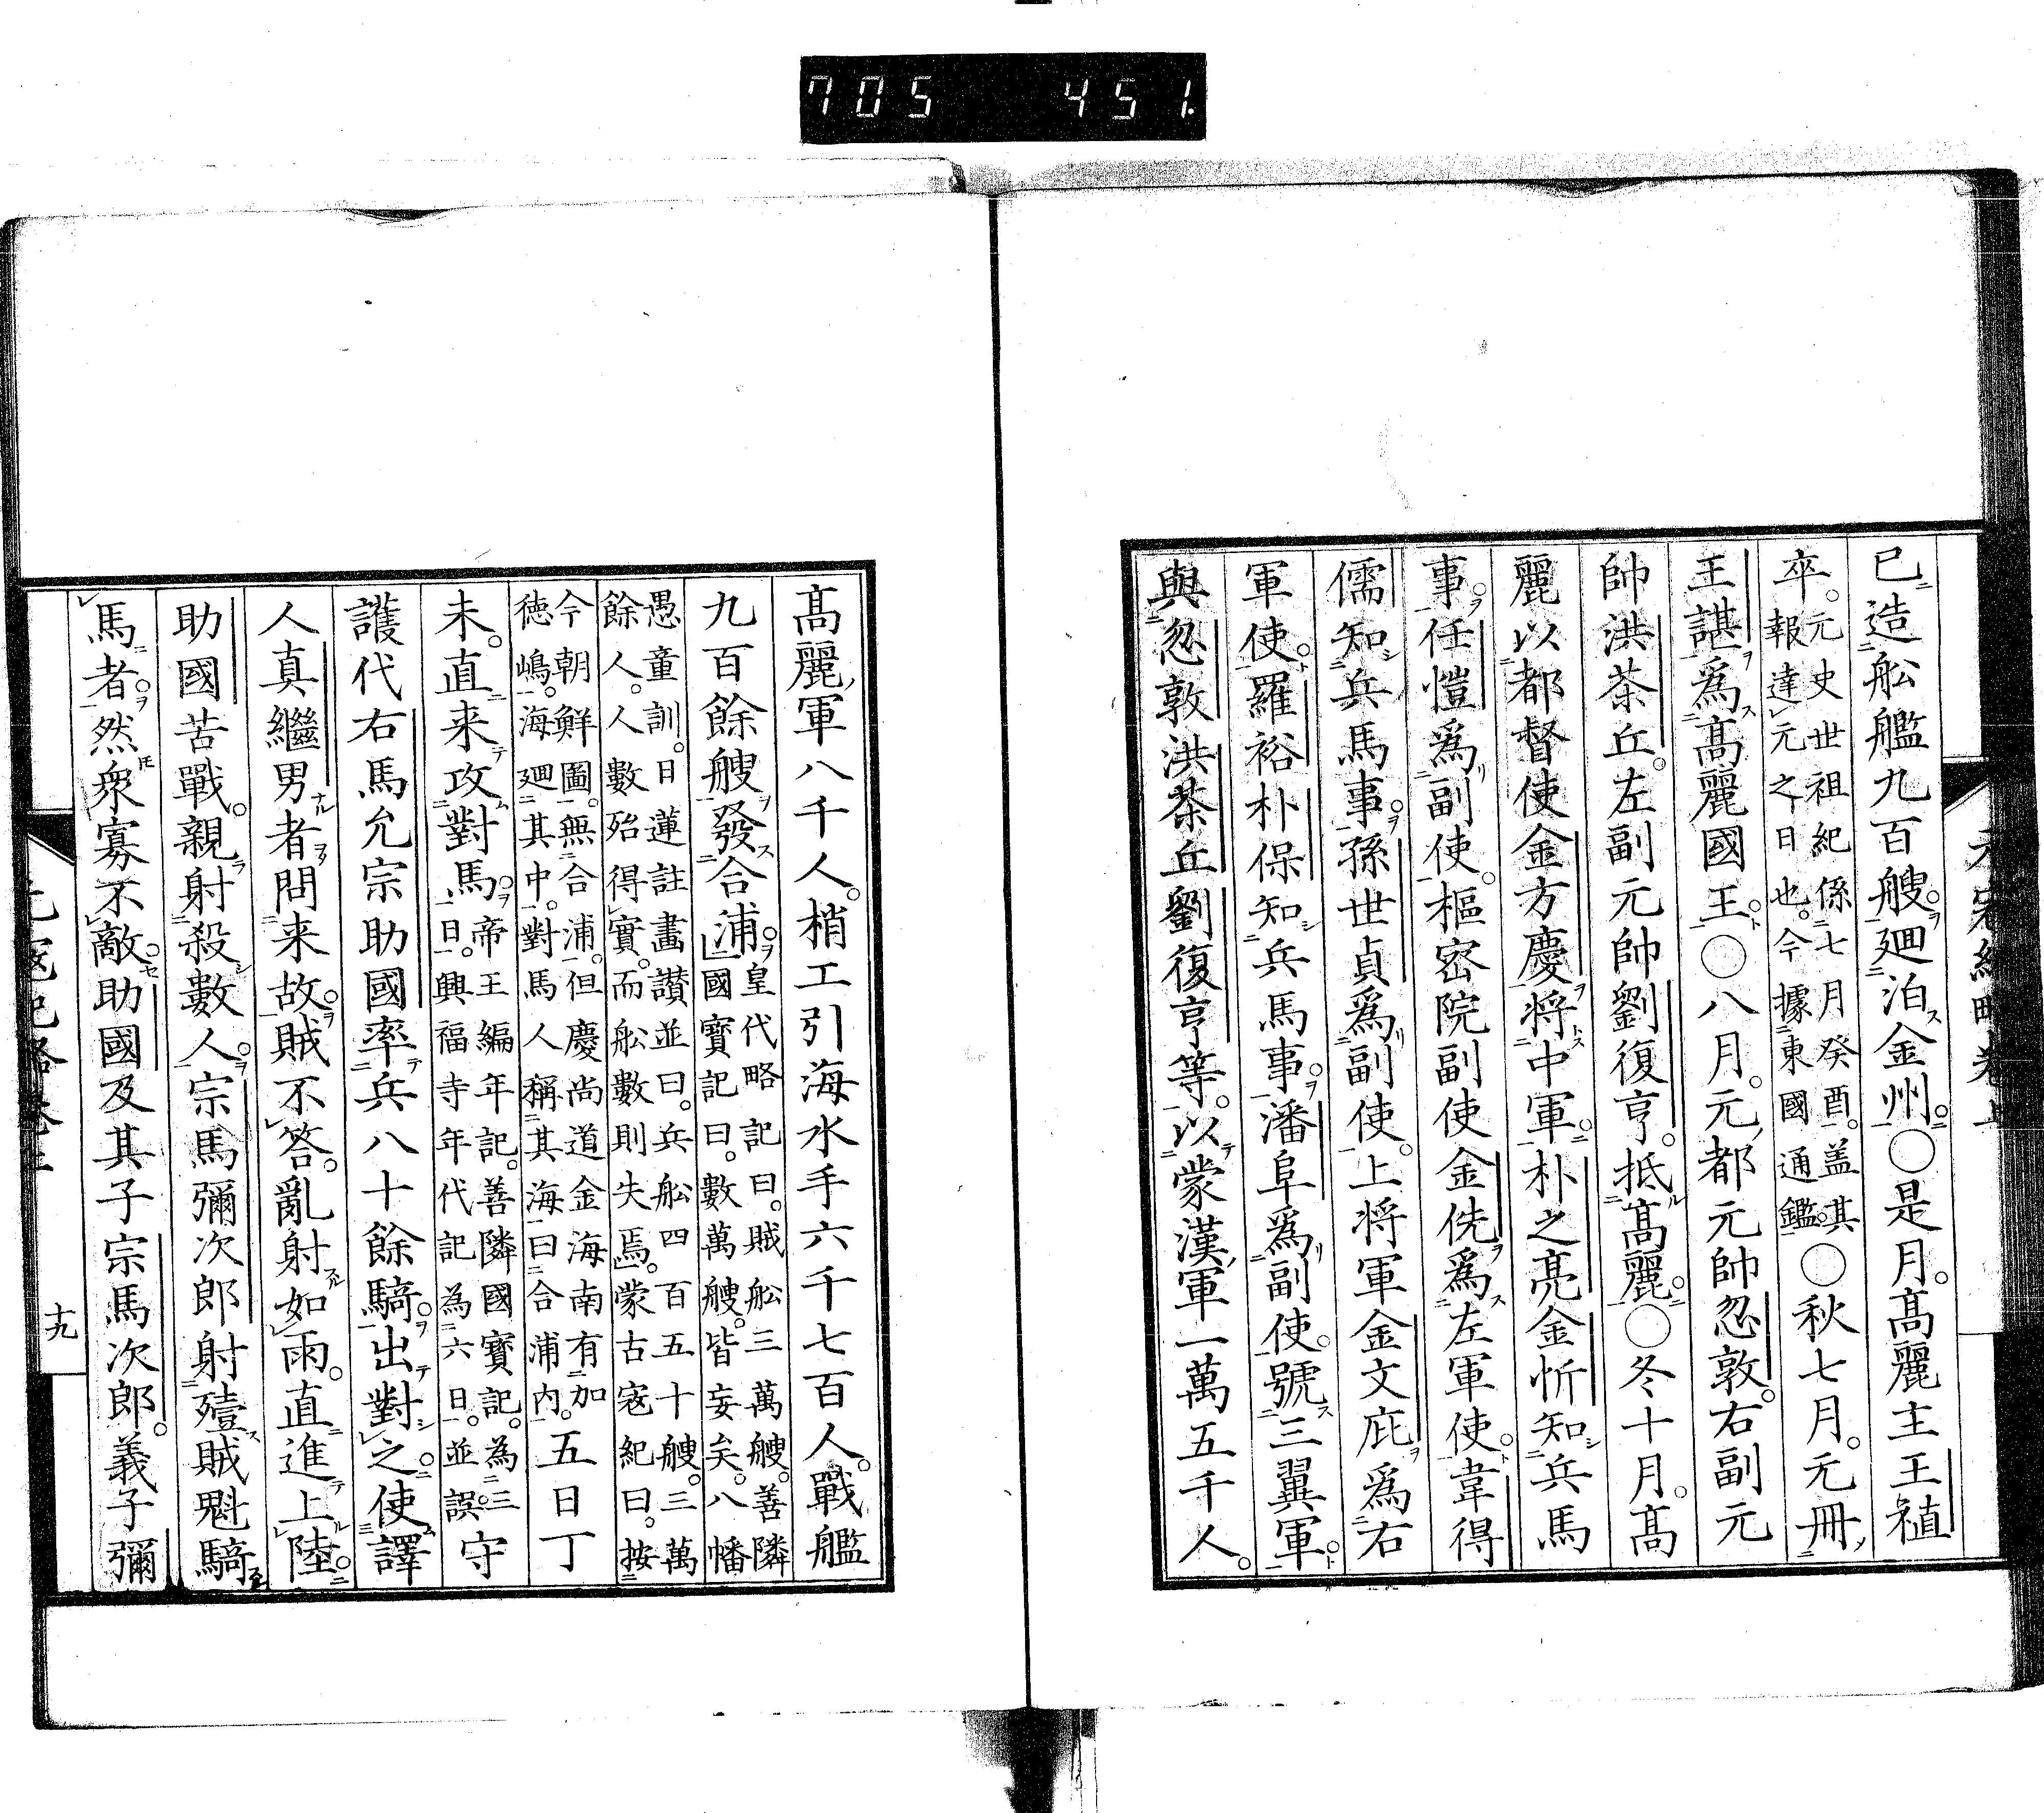 705 451
已造舩艦九百艘廻泊金州○是月髙麗主王禃
卒元史世祖紀係七月癸酉盖其
報達元之日也今據東國通鑑○秋七月元冊
王諶爲髙麗國王○八月元都元帥忽敦右副元
帥洪茶丘左副元帥劉復亨抵髙麗○冬十月髙
麗以都督使金方慶将中軍朴之亮金忻知兵馬
事任愷爲副使樞密院副使金侁爲左軍使韋得
儒知兵馬事孫世貞爲副使上将軍金文庇爲右
軍使羅裕朴保知兵馬事潘阜爲副使號三翼軍
與忽敦洪茶丘劉復亨等以蒙漢軍一萬五千人
髙麗軍八千人梢工引海水手六千七百人戰艦
九百餘艘發合浦皇代略記曰賊舩三萬艘善隣
國寶記曰數萬艘皆妄矣八幡
愚童訓日蓮註畫讃並曰兵舩四百五十艘三萬
餘人人數殆得實而舩數則失焉蒙古寇紀曰按
今朝鮮圖無合浦但慶尚道金海南有加
徳嶋海廻其中對馬人稱其海曰合浦内五日丁
未直来攻對馬帝王編年記善隣國寶記為三
日興福寺年代記為六日並誤守
護代右馬允宗助國率兵八十餘騎出對之使譯
人真繼男者問来故賊不答亂射如雨直進上陸
助國苦戰親射殺數人宗馬彌次郎射殪賊魁騎
馬者然衆寡不敵助國及其子宗馬次郎義子彌
十九